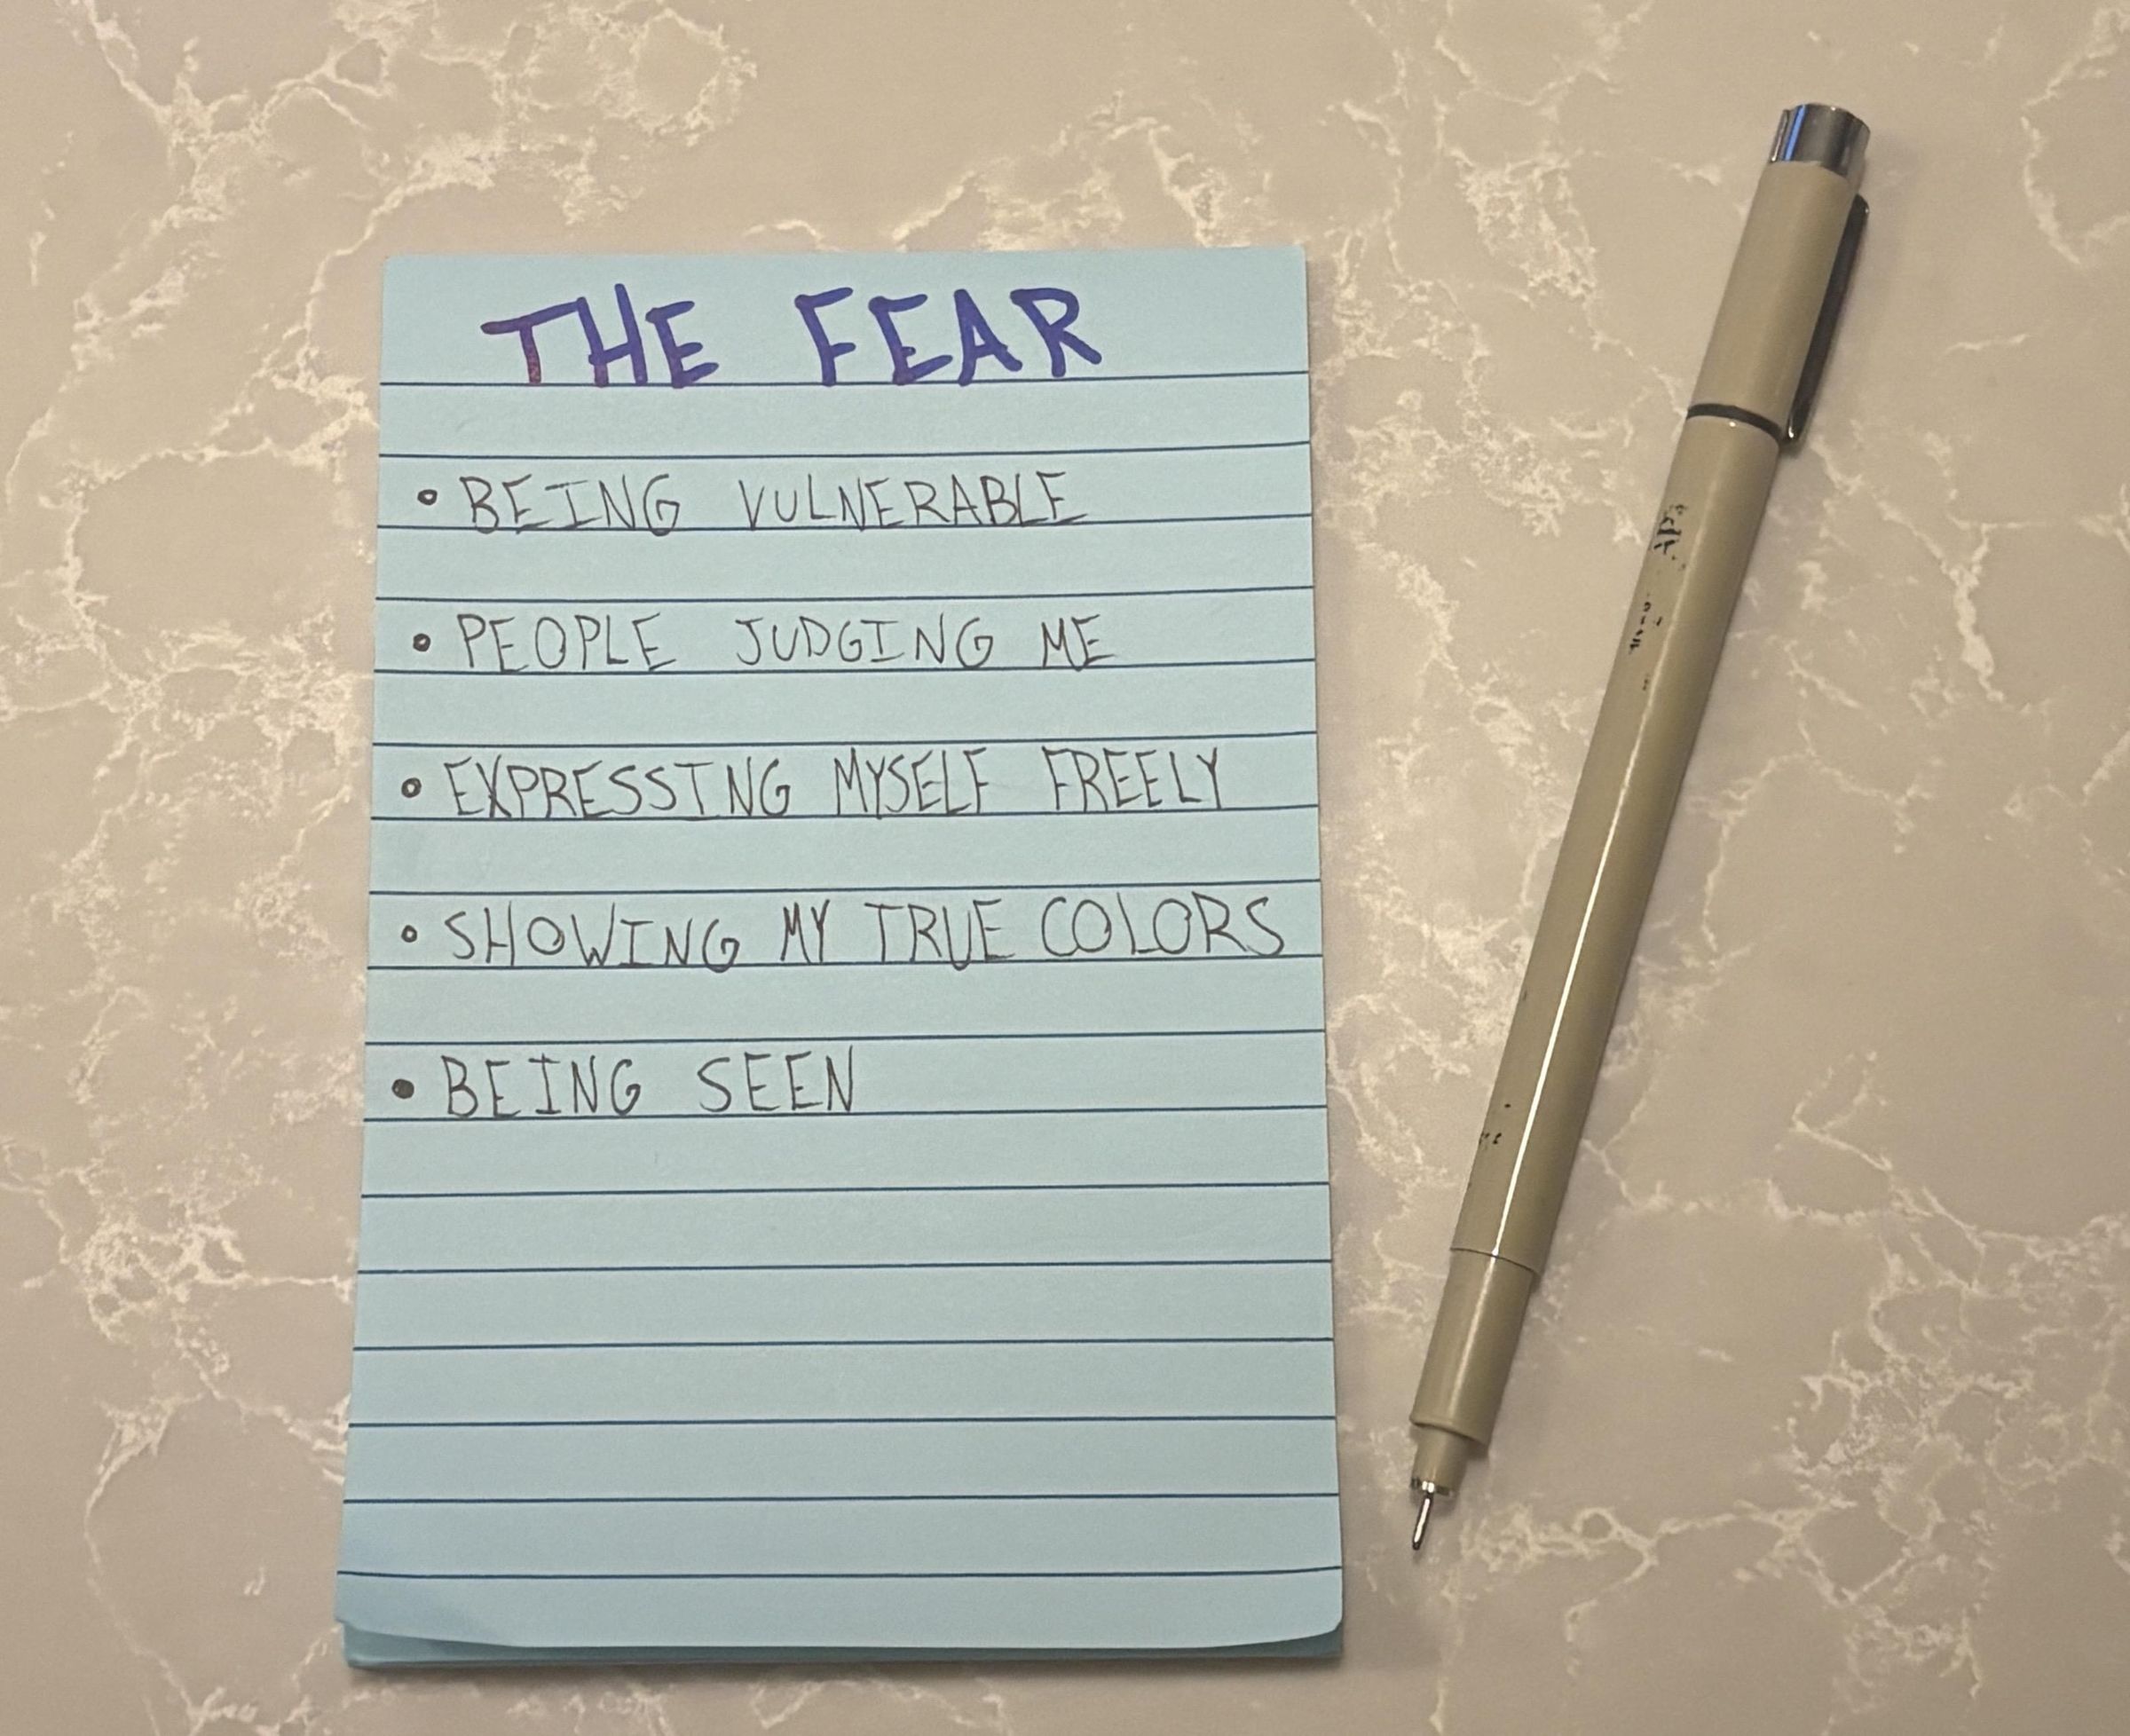 THE FEAR
• BEING VULNERABLE
• PEOPLE JUDGING ME
• EXPRESSING MYSELF FREELY
• SHOWING MY TRUE COLORS
• BEING SEEN